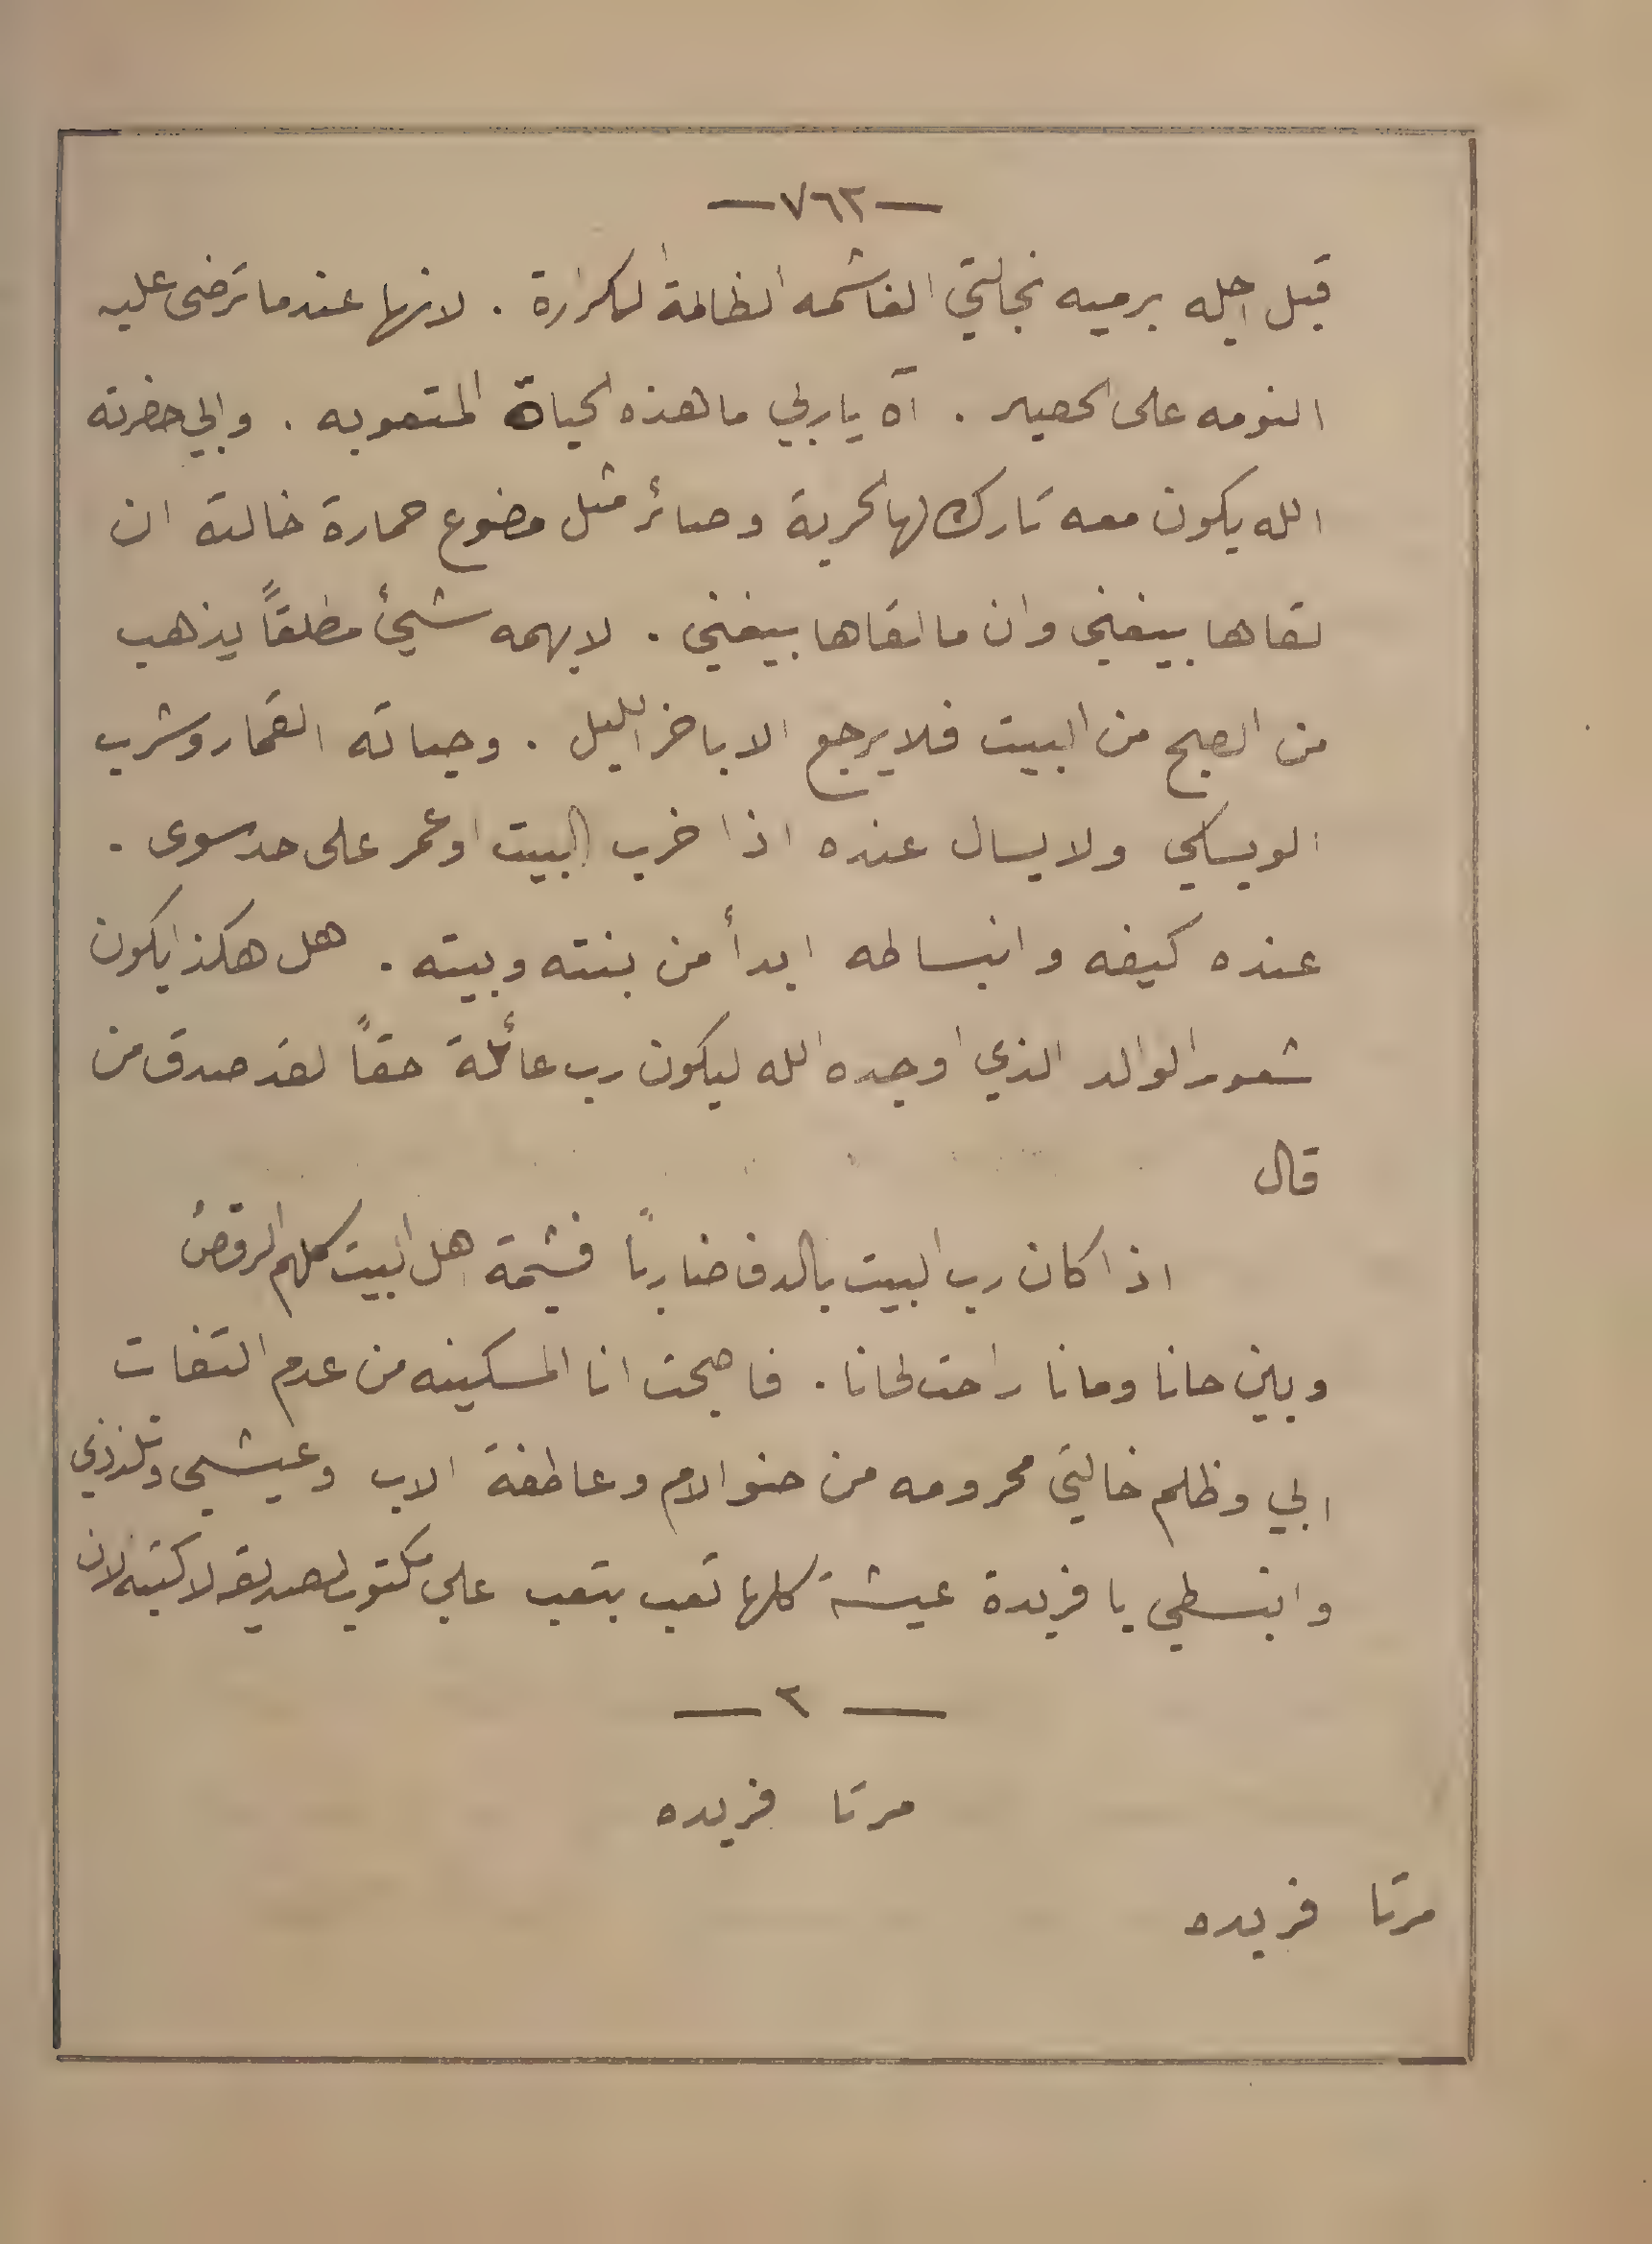 —٧٦٢—
قبل اجله يرميه بخالتي الغاشمه الظالمة المكرارة . لانها عندما ترضى عليه
النومه على الحصير . آه ياربي ما هذه الحياة المتعوبه . وابي حضرته
الله يكون معه تارك لها الحرية وصائر مثل مضوع حمارة خالته ان
لقاها بيغني وان ما لقاها بيغني . لا يهمه شيئ مطلقاً يذهب
من الصبح من البيت فلا يرجع الا باخر الليل . وحياته القمار وشرب
الويسكي ولا يسال عنده اذا خرب البيت او عمر على حد سوى .
عنده كيفه وانبساطه ابدأ من بنته وبيته . هل هكذا يكون
شعور الوالد الذي اوجده الله ليكون رب عائلة حقاً لقد صدق من
قال
اذا كان رب البيت بالدف ضارباً فشيمة اهل البيت كلهم الرقصُ
وبين حانا ومانا راحت لحانا . فاصبحت انا المسكينه من عدم التفات
ابي وظلم خالتي محرومه من حنو الام وعاطفة الاب وعيشي وتلذذي
وانبسطي يا فريدة عيشة كلها تعب بتعب علي مكتوب لصديقه لاكتبه لان
— ٢ —
مرتا فريده
مرتا فريده